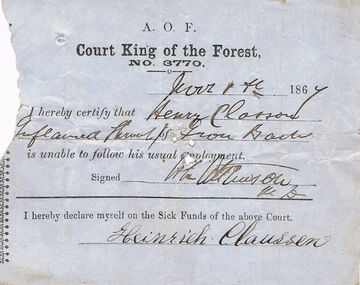 A. O. F.
Court King of the Forest,
NO. 3770.
186
I hereby certify that Henry Classon
Inflamed
is unable to follow his usual employment.
Signed
I hereby declare myself on the Sick Funds of the above Court.
Heinrich Claussen